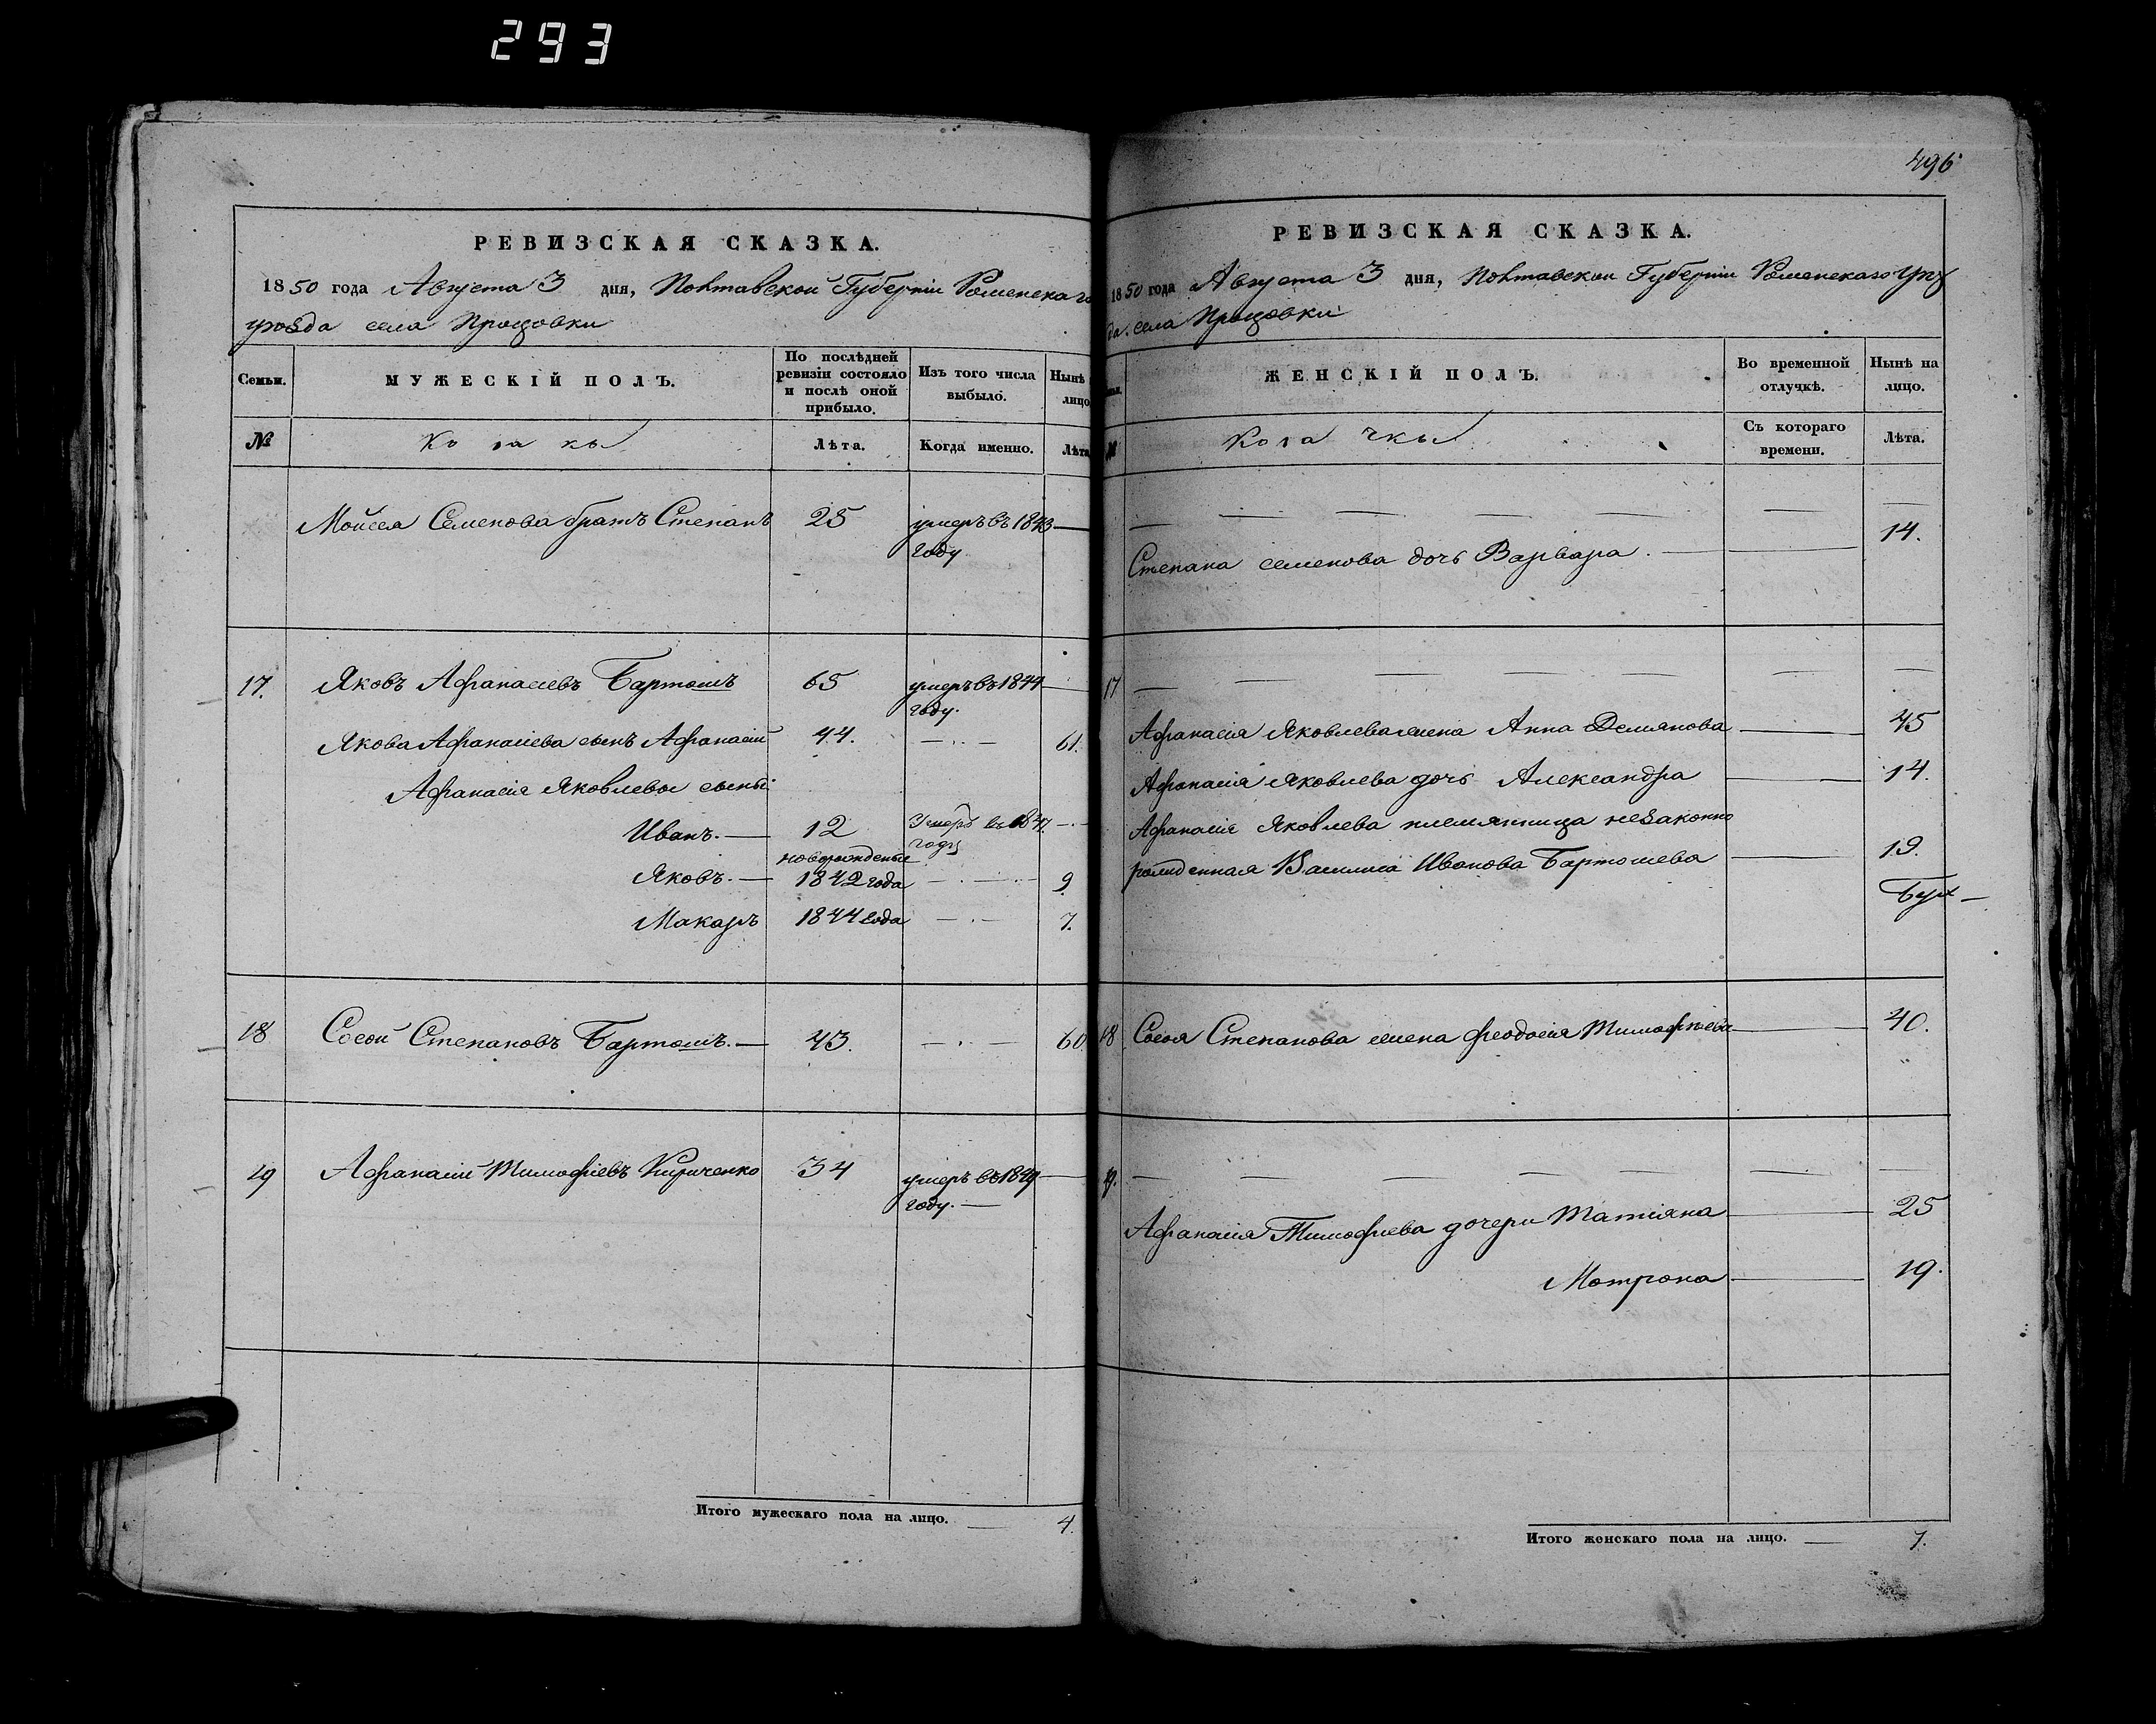 293
РЕВИЗСКАЯ СКАЗКА.
1850 года Августа 3 дня, Полтавской Губерніи Роменскаго
уѣзда села Процовки
Семьи. МУЖЕСКІЙ ПОЛЪ. По послѣдней ревизіи состояло и послѣ оной прибыло. Изъ того числа выбыло. Нынѣ лицо
№ Козаки Лѣта. Когда именно. Лѣта
Мойсея Семенова братъ Степанъ 25 умеръ въ 1843 —
году
17. Яковъ Афанасіевъ Бартошъ 65 умеръ въ 1844 —
году.
Якова Афанасіева сынъ Афанасій 44. — . — 61.
Афанасія Яковлева сыны
Иванъ. — 12 Умеръ въ 1847. — . —
году
новорожденые
Яковъ. — 1842 года — . — . — 9.
Макаръ 1844 года — . — 7.
18 Сосой Степановъ Бартошъ. — 43. — . — 60
19 Афанасій Тимофіевъ Кириченко 34 умеръ въ 1849 —
году. —
Итого мужескаго пола на лицо. — 4.
496
РЕВИЗСКАЯ СКАЗКА.
1850 года Августа 3 дня, Полтавской Губерніи Роменскаго уѣз
да. села Процовки
ЖЕНСКІЙ ПОЛЪ. Во временной отлучкѣ. Нынѣ на лицо.
№ Козачки Съ котораго времени. Лѣта.
— — — — — — —
Степана Семенова дочь Варвара. — — 14.
17 — — — — — — —
Афанасія Яковлева жена Анна Демянова — 45
Афанасія Яковлева дочь Александра — 14.
Афанасія Яковлева племянница незаконно
рожденная Василиса Иванова Бартошева — 19.
18 Сосоя Степанова жена Феодосія Тимофѣева — 40.
19. — — — — — — —
Афанасія Тимофіева дочери Татіяна — 25
Мотрона — 19.
Итого женскаго пола на лицо. — 7.